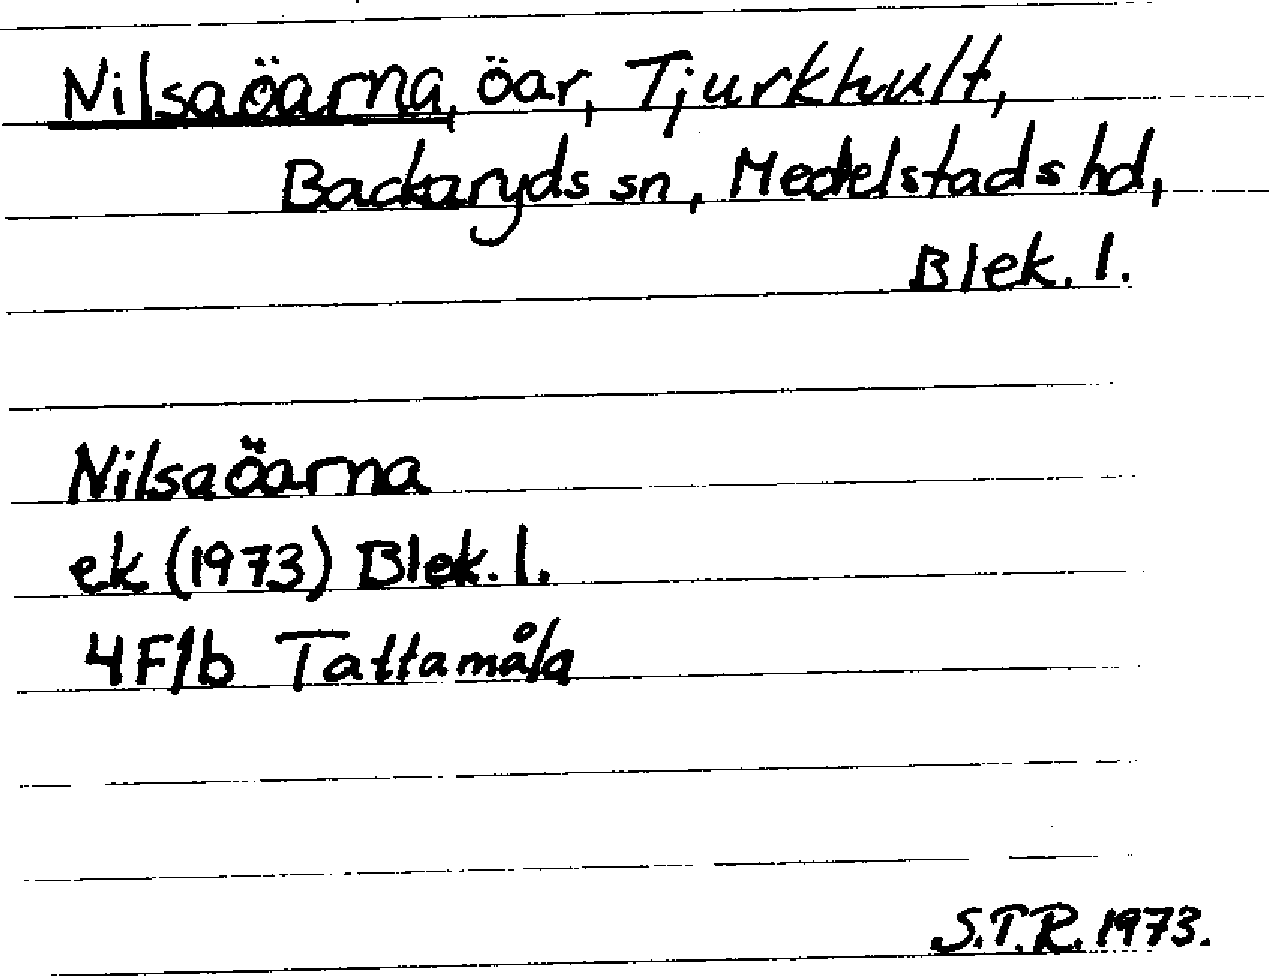 Nilsaöarna, öar, Tjurkhult,
Backaryds sn, Medelstads hd,
Blek. l.
Nilsaöarna
ek (1973) Blek. l.
4F1b Tattamåla
S.T.R. 1973.